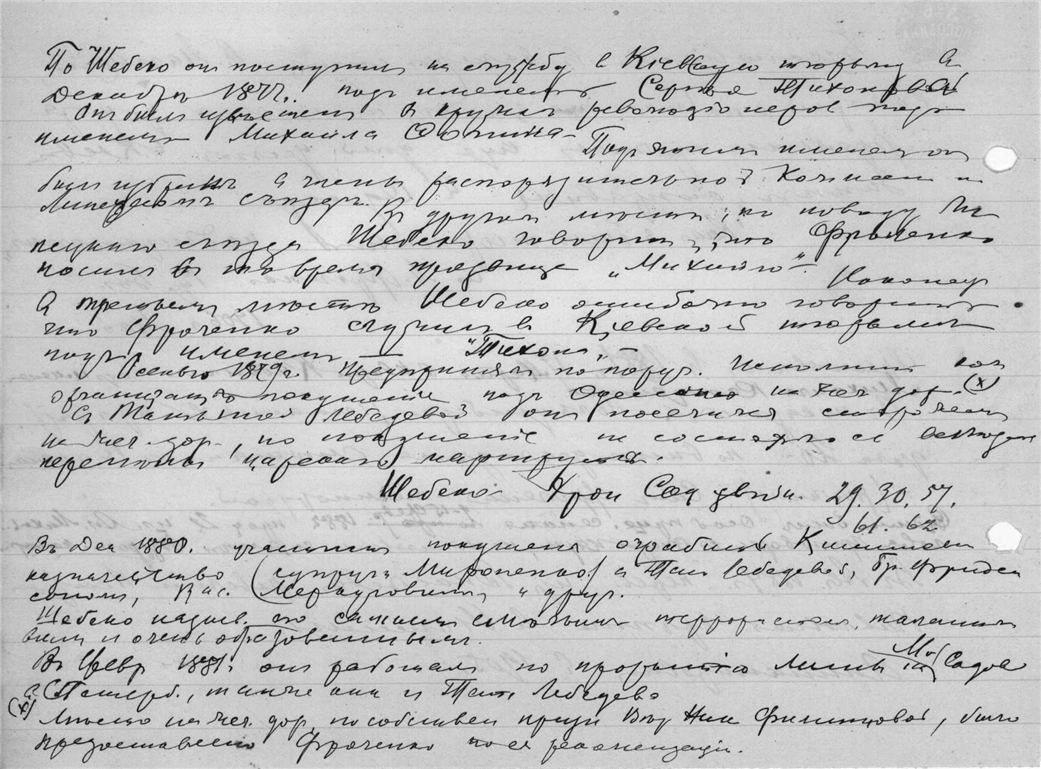 По Шебеко он поступил на службу в Кіевскую тюрьму в
Декабрь 1877г. подъ именемъ Сергѣя Тихонова
Онъ былъ извѣстенъ в кружкѣ революціонеров подъ
именем Михаила Фомина.
Под этимъ именем он
былъ избранъ в члены распорядительной Комиссии
Липецкаго съезда. В другом мѣсте, по поводу Ли
пецкаго съезда Шебеко говоритъ, что Фроленко
носил в то время прозвище „Михайло“.
Наконец
в третьем мѣсте Шебеко ошибочно говоритъ
что Фроленко служил в Кіевской тюрьме
подъ именем „Тихон“.
Осенью 1879г. предпринялъ по поруч. Исполнит. Ком
организацію покушения под Одессою на жел дор. (х)
С Татьяной Лебедевой он поселился сторожем
на жел. дор., но покушеніе не состоялось вследств
перемѣны царскаго маршрута.
Шебеко Хрон Соц движ. 29. 30. 57.
61. 62
Въ Дек 1880. участник покушенія ограбить Кишинев
казначейство (супруги Мироненко) с Тат Лебедевой, бр. Фриден
соном, Вас. Меркуловым и друг.
Шебеко назыв. его самым смѣлым террористом, талантли
вым и очень образованным.
Въ Февр 1881г. он работал по прорытію мины на М. Садов
в С Петерб., также как и Тат Лебедева
(х) Мѣсто на жел дор, по содействію Вѣры Ник Филипповой, было
предоставлено Фроленко по ея рекомендаціи.